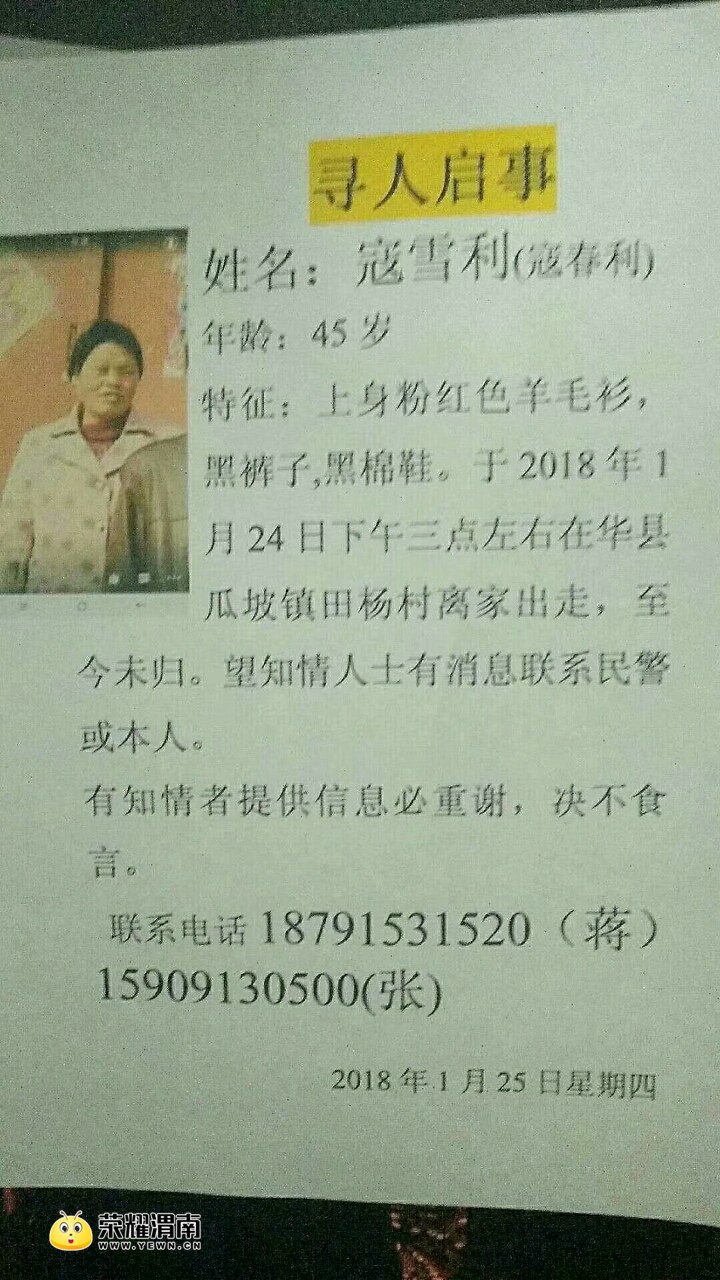 寻人启事
姓名：寇雪利(寇春利)
年龄：45 岁
特征：上身粉红色羊毛衫，
黑裤子,黑棉鞋。于 2018 年 1
月 24 日下午三点左右在华县
瓜坡镇田杨村离家出走，至
今未归。望知情人士有消息联系民警
或本人。
有知情者提供信息必重谢，决不食
言。
联系电话 18791531520（蒋）
15909130500(张)
2018 年 1 月 25 日星期四
荣耀渭南
WWW.YEWN.CN